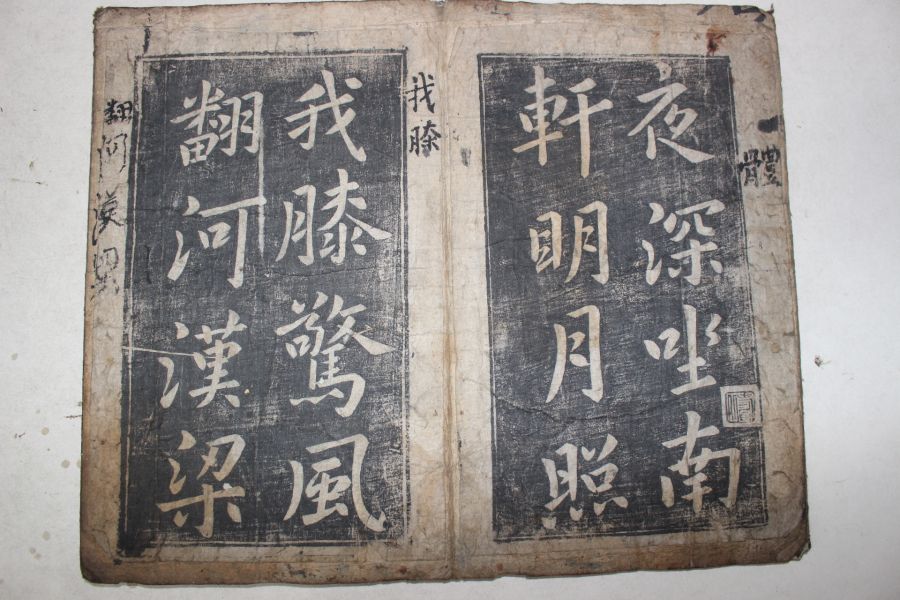 夜深坐南
軒明月照
我膝驚風
翻河漢梁
體
我膝
翻河漢梁